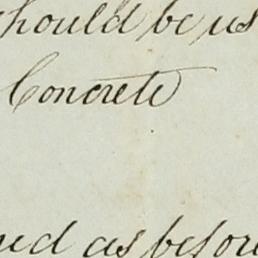 should be us
Concrete
ned as before